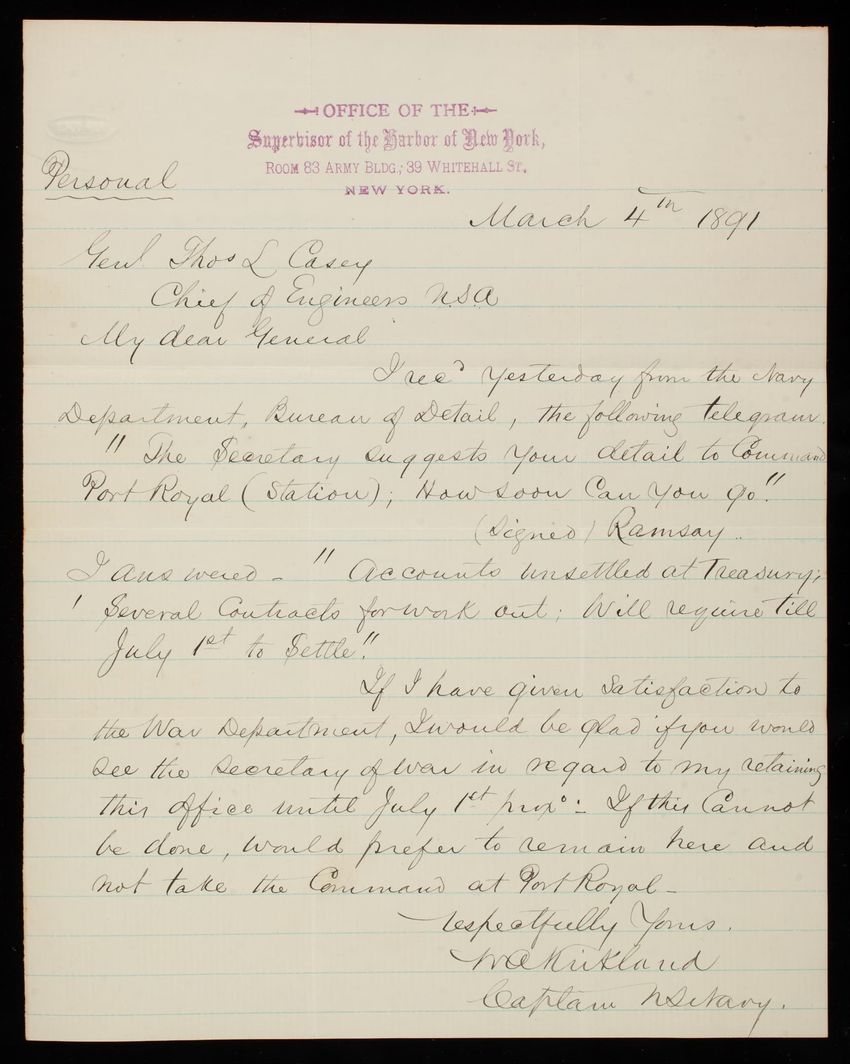 OFFICE OF THE
Supervisor of the Harbor of New York,
ROOM 83 ARMY BLDG., 39 WHITEHALL ST.
NEW YORK.
Personal
March 4th 1891
Genl Thos L Casey
Chief of Engineers U.S.A
My dear General
I recd yesterday from the Navy
Department, Bureau of Detail, the following telegram.
" The Secretary suggests your detail to Command
Port Royal (Station); How soon Can you go."
(Signed) Ramsay..
I answered - " Accounts unsettled at Treasury;
' Several Contracts for work out; Will require till
July 1st to Settle."
If I have given Satisfaction to
the War Department, I would be glad if you would
see the Secretary of War in regard to my retaining
this office until July 1st proxo:- If this Cannot
be done, would prefer to remain here and
not take the Command at Port Royal -
respectfully Yours.
W A Kirkland
Captain U S Navy.